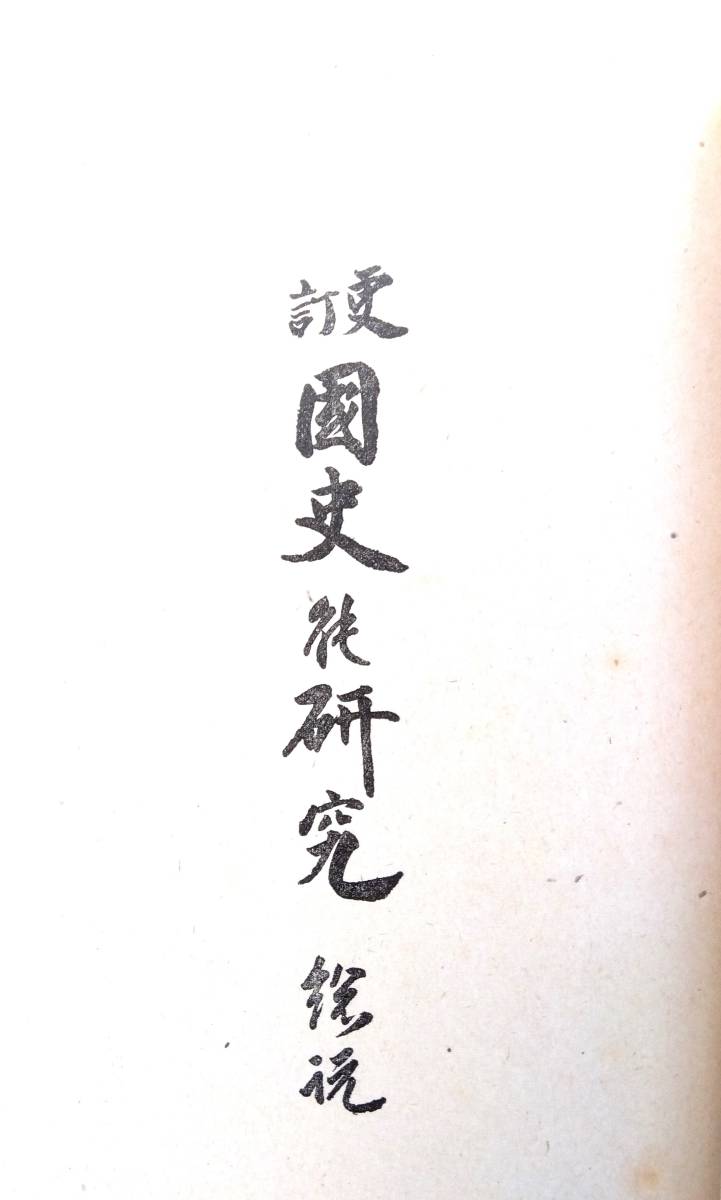 更訂
國史能研究
總説